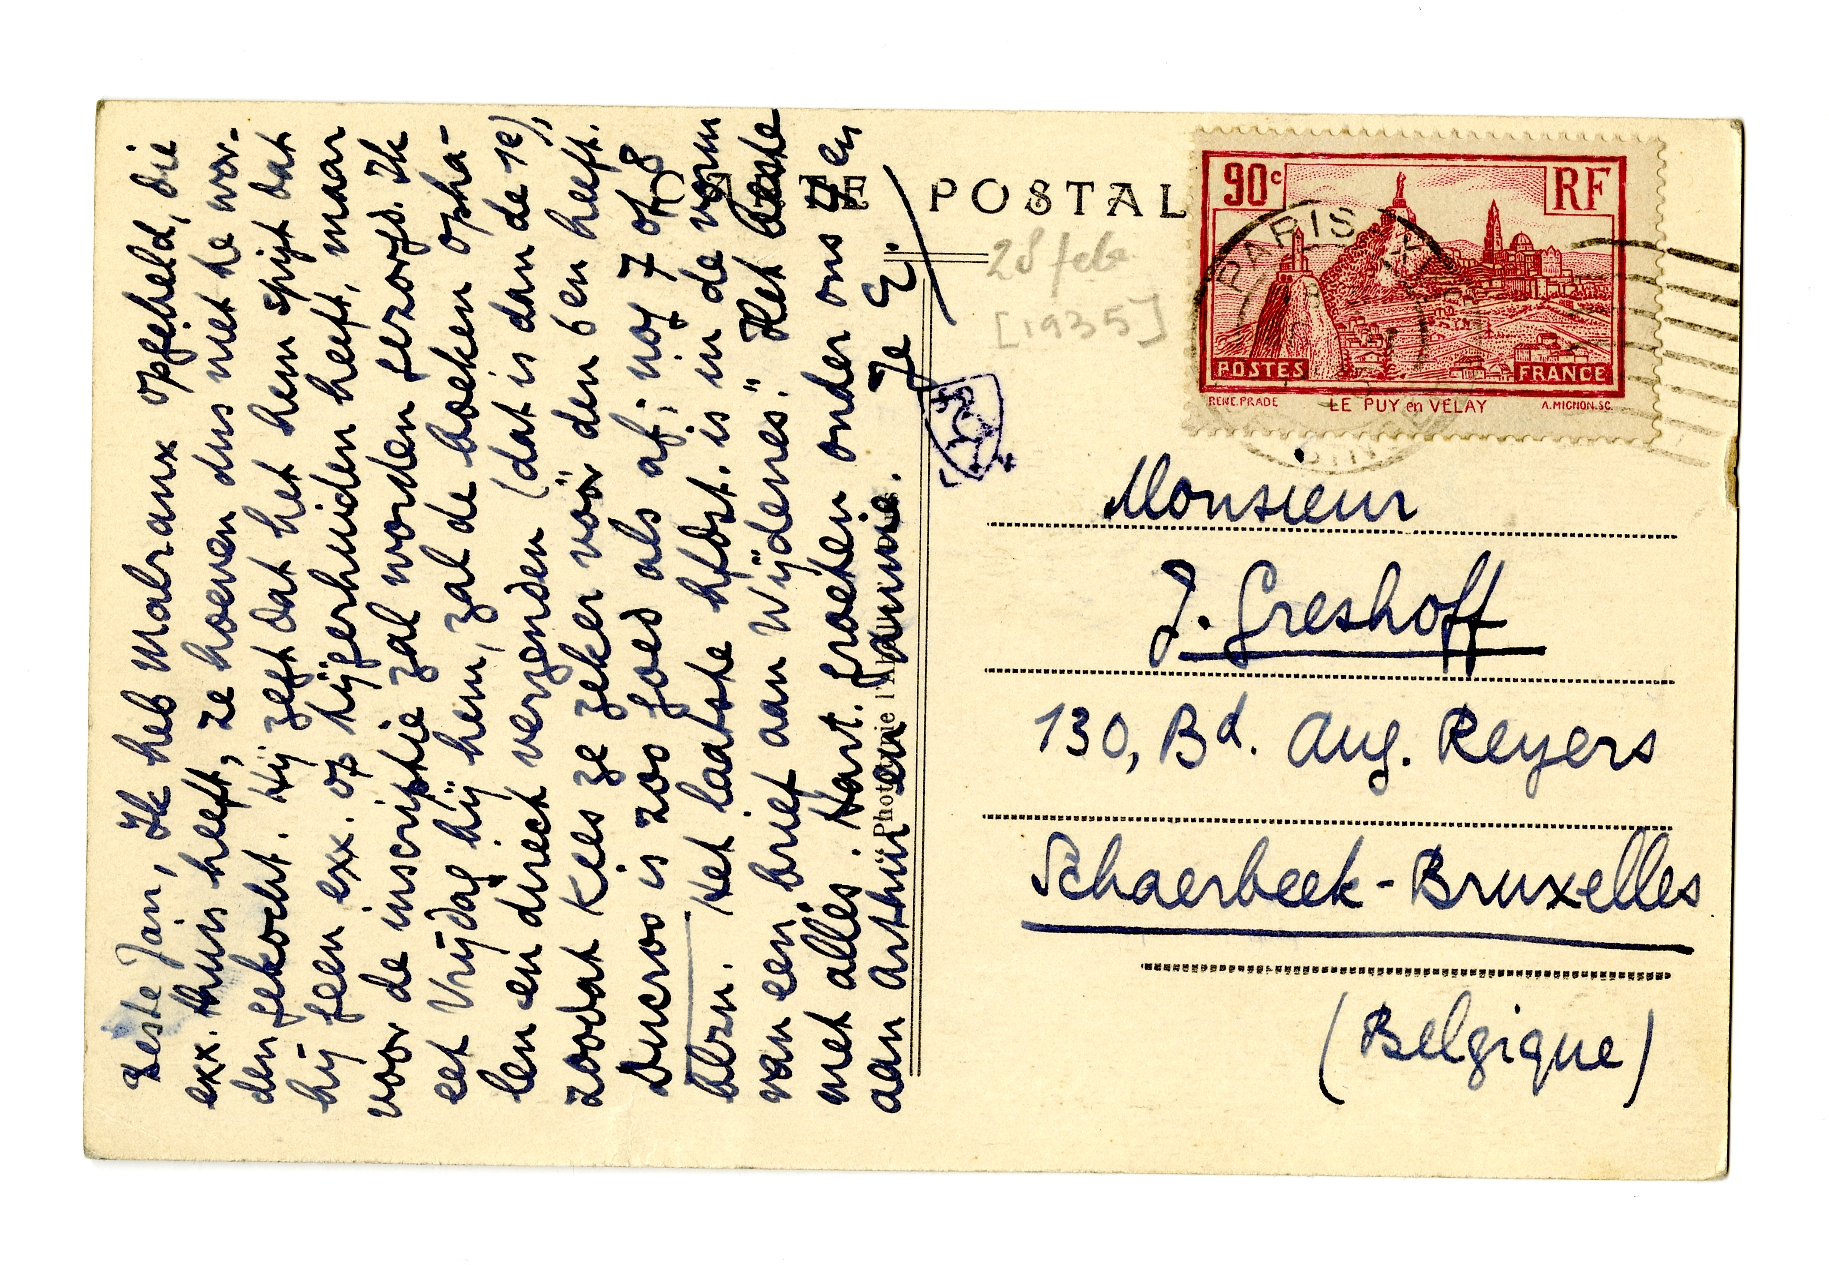 Beste Jan, Ik heb Malraux opgebeld, die
exx. thuis heeft, ze hoeven dus niet te wor-
den gekocht. Hij zegt dat het hem spijt dat
hij geen exx. op tijgerhuiden heeft, maar
voor de inscriptie zal worden gezorgd. Ik
eet Vrijdag bij hem, zal de boeken opha-
len en direct verzenden (dat is dan de 1e),
zoodat Kees ze zeker vóór den 6en heeft.
Ducroo is zoo goed als af; nog 7 of 8
blzn. Het laatste hfdst. is in de vorm
van een „brief aan Wijdenes." Het beste
met alles. Hart. groeten onder ons 4 en
aan Arthur en Jannie. Je E.
CARTE POSTALE
28 febr.
[1935]
90c
RF
PARIS
POSTES
FRANCE
RENE.PRADE
LE PUY en VELAY
A.MIGNON.SC.
Monsieur
J. Greshoff
130, Bd. Aug. Reyers
Schaerbeek-Bruxelles
(Belgique)